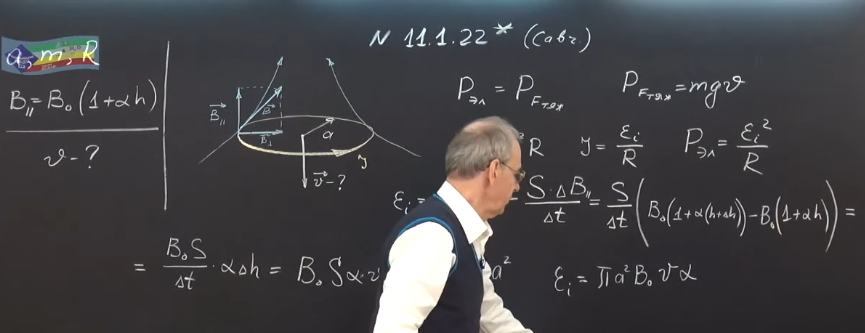 N 11.1.22* (Савч)
a, m, R
B∥ = B₀(1+αh)
v - ?
B∥
B
B⊥
a
J
v - ?
Pэл = PFтяж
PFтяж = mgv
² R
J = ℰi/R
Pэл = ℰi²/R
ℰi = S·ΔB∥/Δt = S/Δt (B₀(1+α(h+Δh)) - B₀(1+αh)) =
= B₀S/Δt · αΔh = B₀Sα·v
a²
ℰi = πa²B₀vα